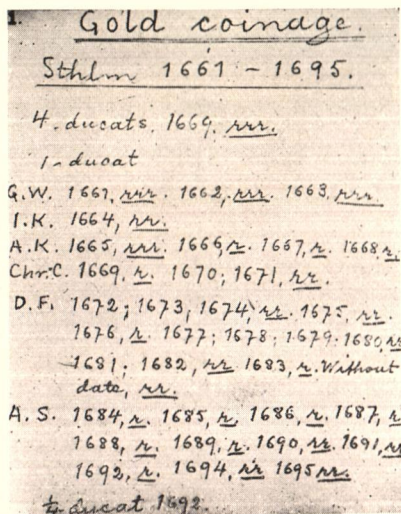 1.
Gold coinage.
Sthlm 1661 - 1695.
4-ducats. 1669. rrr.
1-ducat
G.W. 1661, rrr. 1662, rrr. 1663, rrr.
I.K. 1664, rr.
A.K. 1665, rrr. 1666, r. 1667, r. 1668 r.
Chr.C. 1669, r. 1670; 1671, rr.
D.F. 1672; 1673, 1674, rr. 1675, rr.
1676, r. 1677; 1678; 1679. 1680, rr
1681; 1682, rr 1683, r. Without
date, rr.
A.S. 1684, r. 1685, r. 1686, r. 1687, r
1688, r. 1689, r. 1690, rr. 1691, rr
1692, r. 1694, rr 1695 rr.
ducat 1692.